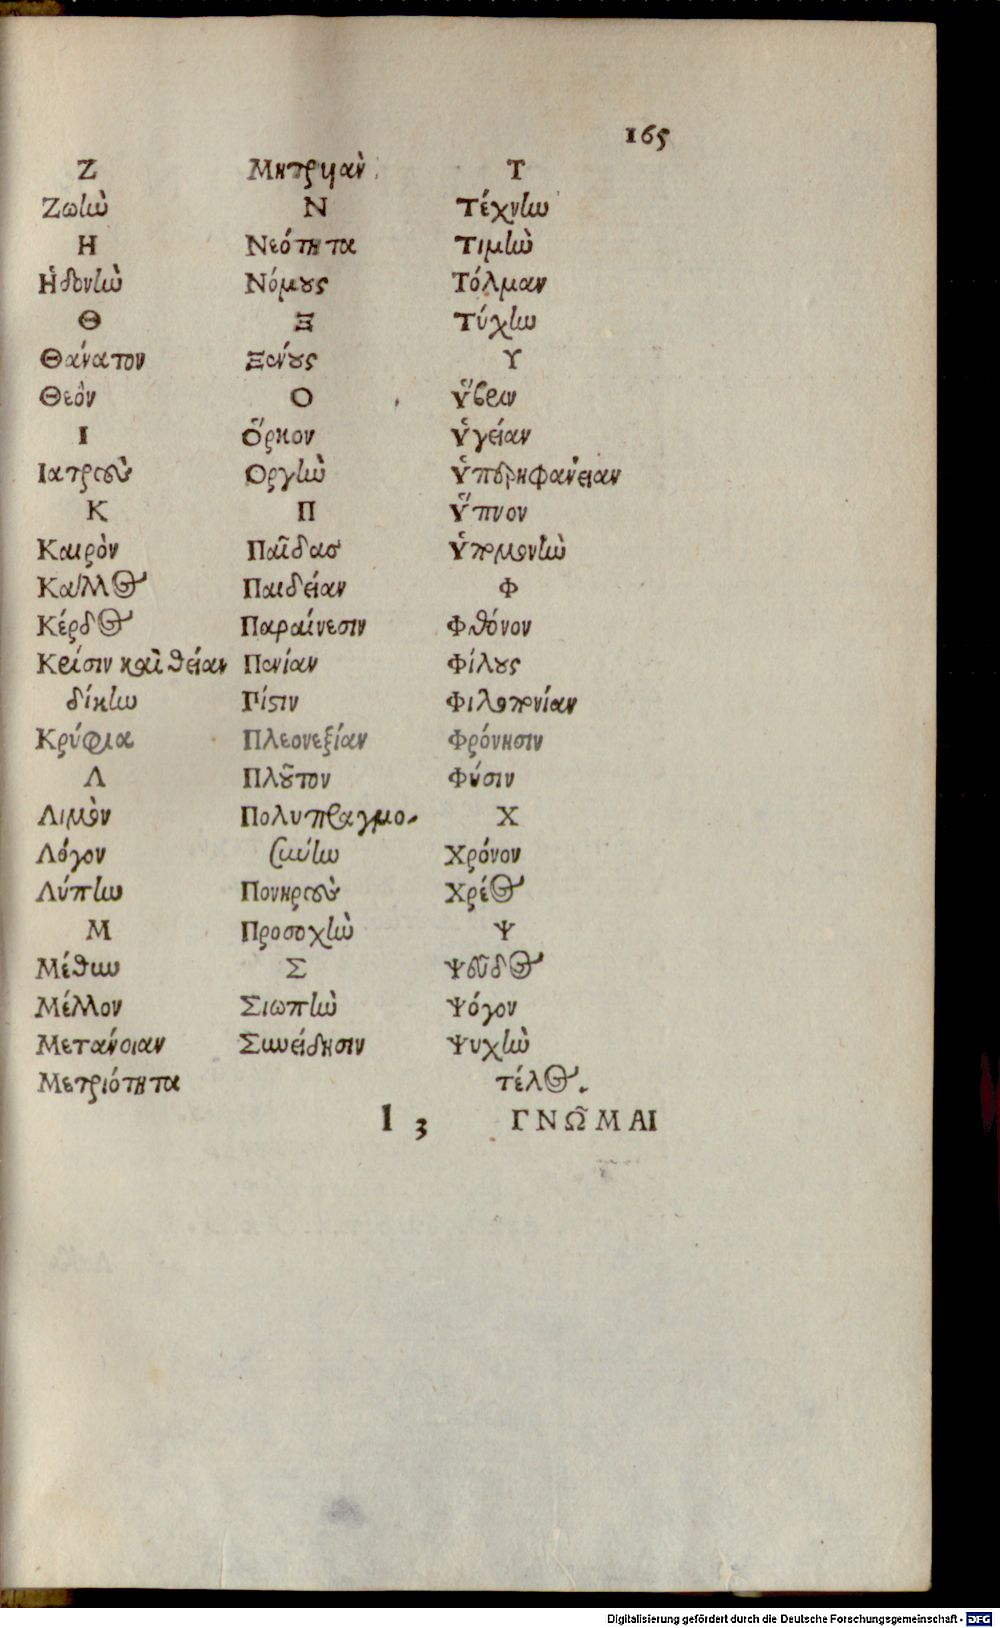 165
Ζ
Ζωὼ
Η
Ἡδονὼ
Θ
Θάνατον
Θεὸν
Ι
Ιατροὺ
Κ
Καιρὸν
Κάλλος
Κέρδος
Κρίσιν καὶ θείαν
δίκην
Κρύφια
Λ
Λιμὸν
Λόγον
Λύπην
Μ
Μέθην
Μέλλον
Μετάνοιαν
Μετριότητα
Μητρυιὰν
Ν
Νεότητα
Νόμους
Ξ
Ξένους
Ο
Ὅρκον
Οργὴν
Π
Παῖδας
Παιδείαν
Παραίνεσιν
Πενίαν
Πίστιν
Πλεονεξίαν
Πλοῦτον
Πολυπραγμο-
σμύην
Πονηροὺς
Προσοχὴν
Σ
Σιωπὴν
Συνείδησιν
Τ
Τέχνην
Τιμὴν
Τόλμαν
Τύχην
Υ
Ὕβριν
Ὑγείαν
Ὑπερηφανείαν
Ὕπνον
Ὑπομονὴν
Φ
Φθόνον
Φίλους
Φιλοπονίαν
Φρόνησιν
Φύσιν
Χ
Χρόνον
Χρέος
Ψ
Ψεῦδος
Ψόγον
Ψυχὴν
τέλος.
I 3 ΓΝΩ͂ΜΑΙ
Digitalisierung gefördert durch die Deutsche Forschungsgemeinschaft - DFG